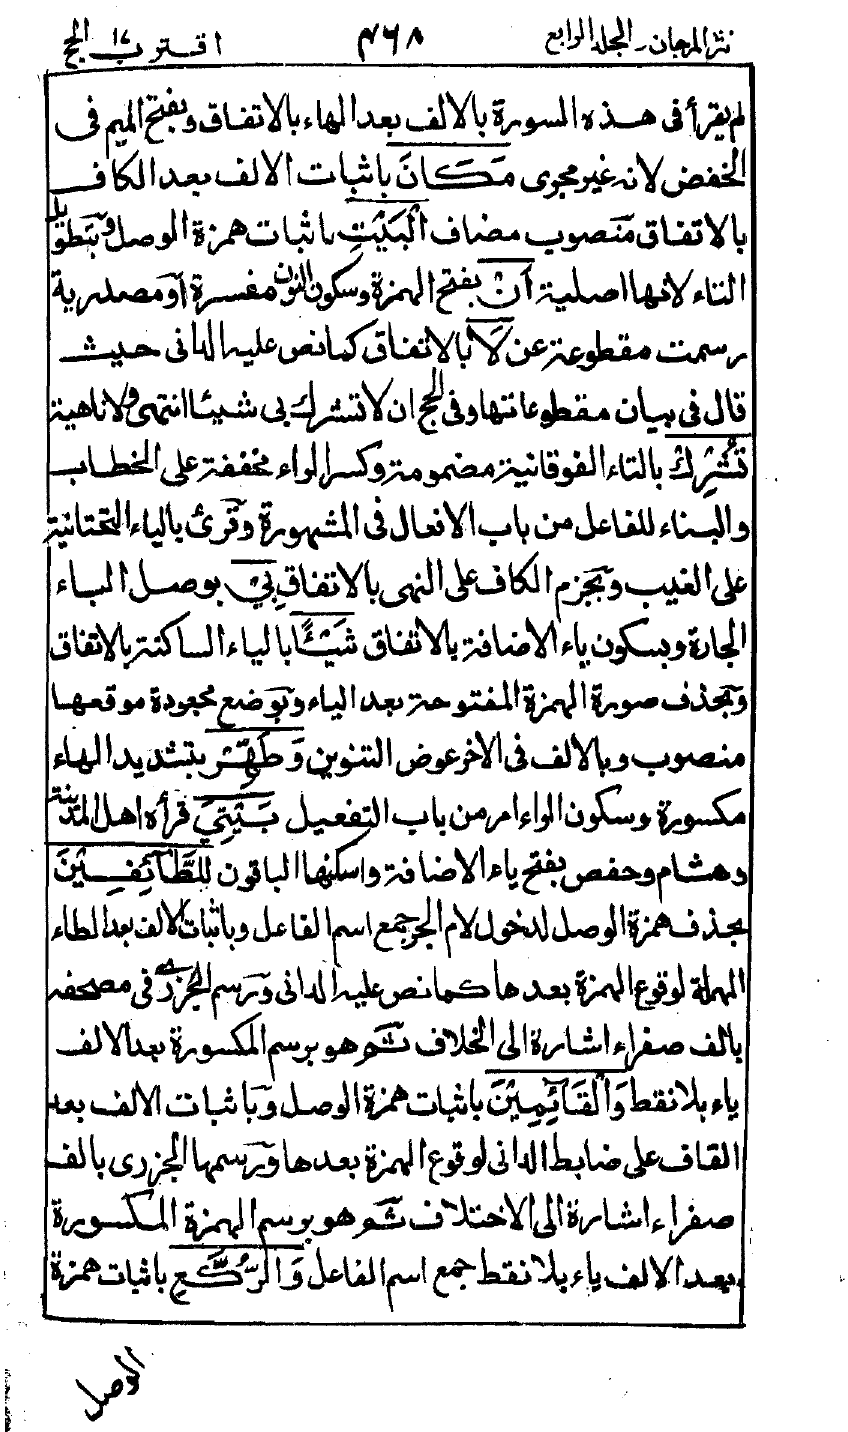 نثر المرجان ـ المجلد الرابع ٤٦٨ اقترب ١٧ الحج
لم يقرأ فى هذه السورة بالالف بعد الهاء بالاتفاق وبفتح الميم فى
الخفض لانه غير مجرى مَكَانَ باثبات الالف بعد الكاف
بالاتفاق منصوب مضاف الْبَيْتِ باثبات همزة الوصل وبتطويل
التاء لانها اصلية اَنْ بفتح الهمزة وسكون النون مفسرة أو مصدرية
رسمت مقطوعة عن لَا بالاتفاق كما نص عليه الدانى حيث
قال فى بيان مقطوعاتها وفى الحج ان لا تشرك بى شيئا انتهى ولا ناهية
تُشْرِكْ بالتاء الفوقانية مضمومة وكسر الراء مخففة على الخطاب
والبناء للفاعل من باب الافعال فى المشهورة وقرئ بالياء التحتانية
على الغيب وبجزم الكاف على النهى بالاتفاق بِيْ بوصل الباء
الجارة وبسكون ياء الاضافة بالاتفاق شَيْـًٔا بالياء الساكنة بالاتفاق
وبحذف صورة الهمزة المفتوحة بعد الياء وبوضع مجعودة موقعها
منصوب وبالالف فى الاخر عوض التنوين وَطَهِّرْ بتشديد الهاء
مكسورة وسكون الراء امر من باب التفعيل بَيْتِيَ قرأه اهل المدينة
وهشام وحفص بفتح ياء الاضافة واسكنها الباقون لِلطَّآئِفِيْنَ
بحذف همزة الوصل لدخول لام الجر جمع اسم الفاعل وباثبات الالف بعد الطاء
المهملة لوقوع الهمزة بعدها كما نص عليه الدانى ورسم الجزرى فى مصحفه
بالف صفراء اشارة الى الخلاف ثم هو برسم المكسورة بعد الالف
ياء بلا نقط وَالْقَآئِمِيْنَ باثبات همزة الوصل وباثبات الالف بعد
القاف على ضابط الدانى لوقوع الهمزة بعدها ورسمها الجزرى بالف
صفراء اشارة الى الاختلاف ثم هو برسم الهمزة المكسورة
بعد الالف ياء بلا نقط جمع اسم الفاعل وَالرُّكَّعِ باثبات همزة
الوصل